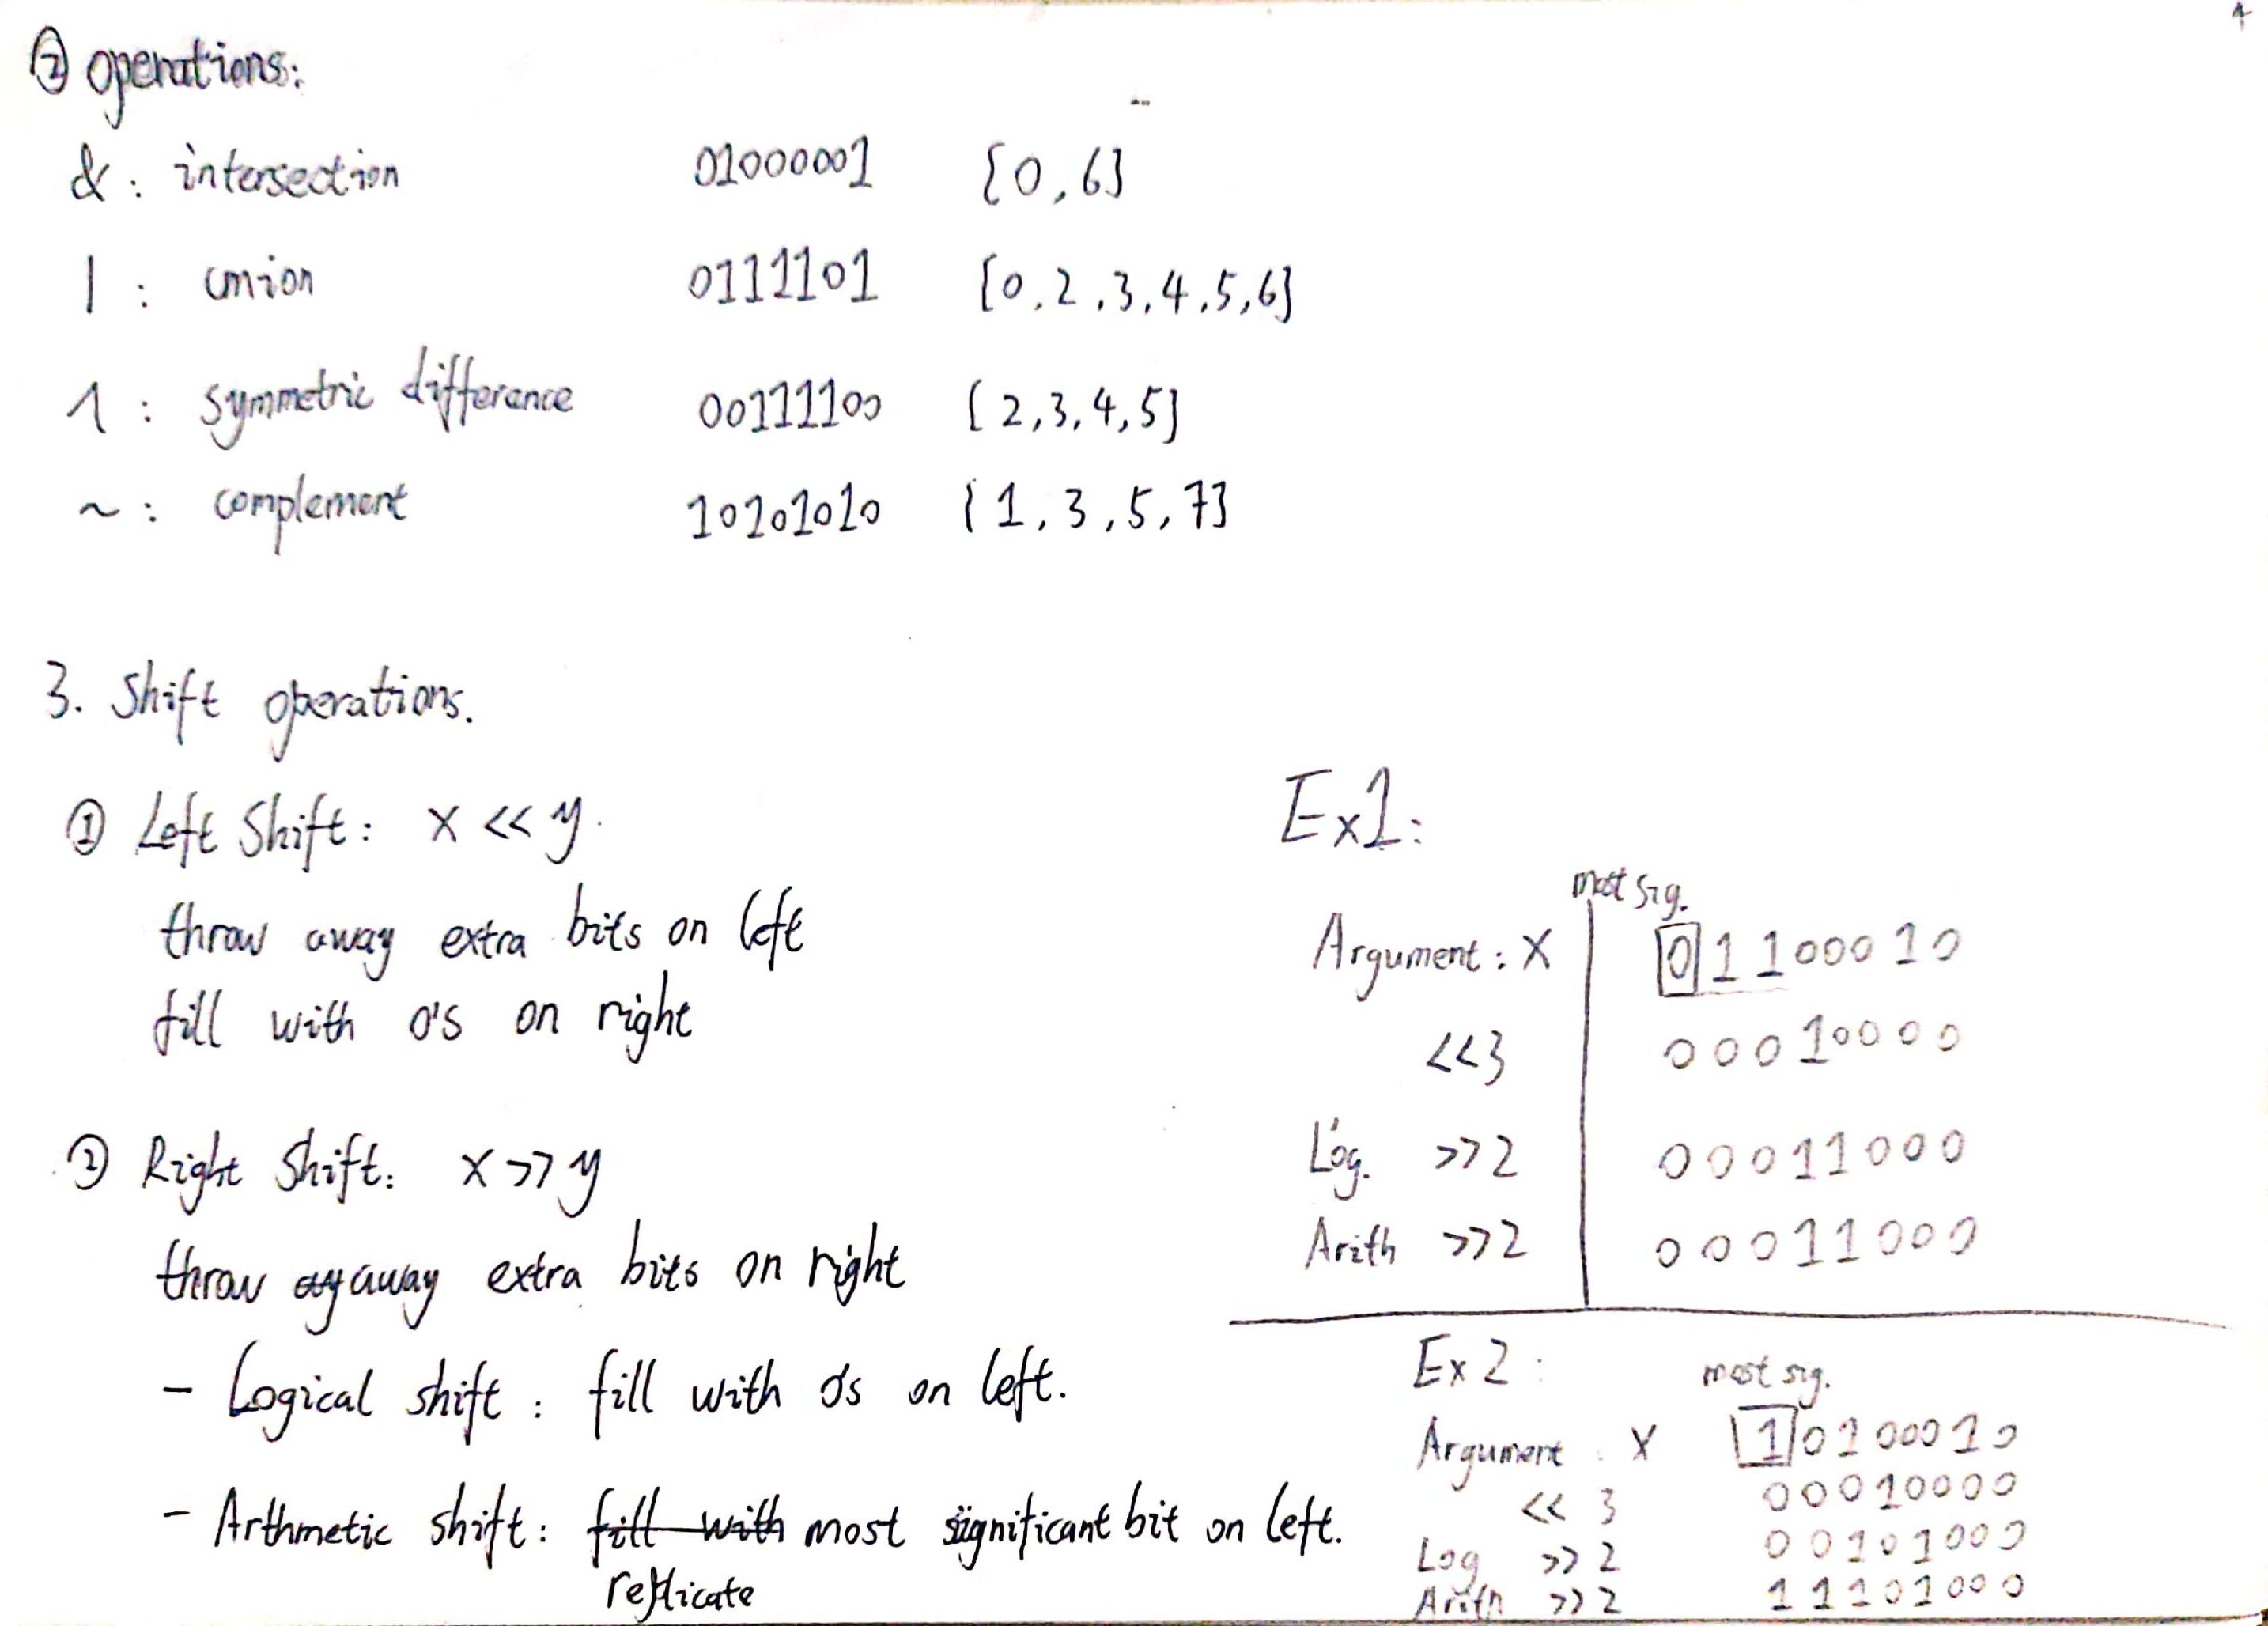 ② operations:
& : intersection 01000001 {0, 6}
| : union 0111101 {0, 2, 3, 4, 5, 6}
^ : symmetric difference 00111100 {2, 3, 4, 5}
~ : complement 10101010 {1, 3, 5, 7}
3. Shift operations.
① Left Shift: x << y.
throw away extra bits on left
fill with 0's on right
② Right Shift: x >> y
throw away extra bits on right
- Logical shift: fill with 0's on left.
- Arthmetic shift: fill with most significant bit on left.
replicate
Ex1:
most sig.
Argument: x 01100010
<<3 00010000
Log. >>2 00011000
Arith >>2 00011000
Ex 2:
most sig.
Argument x 10100010
<< 3 00010000
Log >> 2 00101000
Arith >> 2 11101000